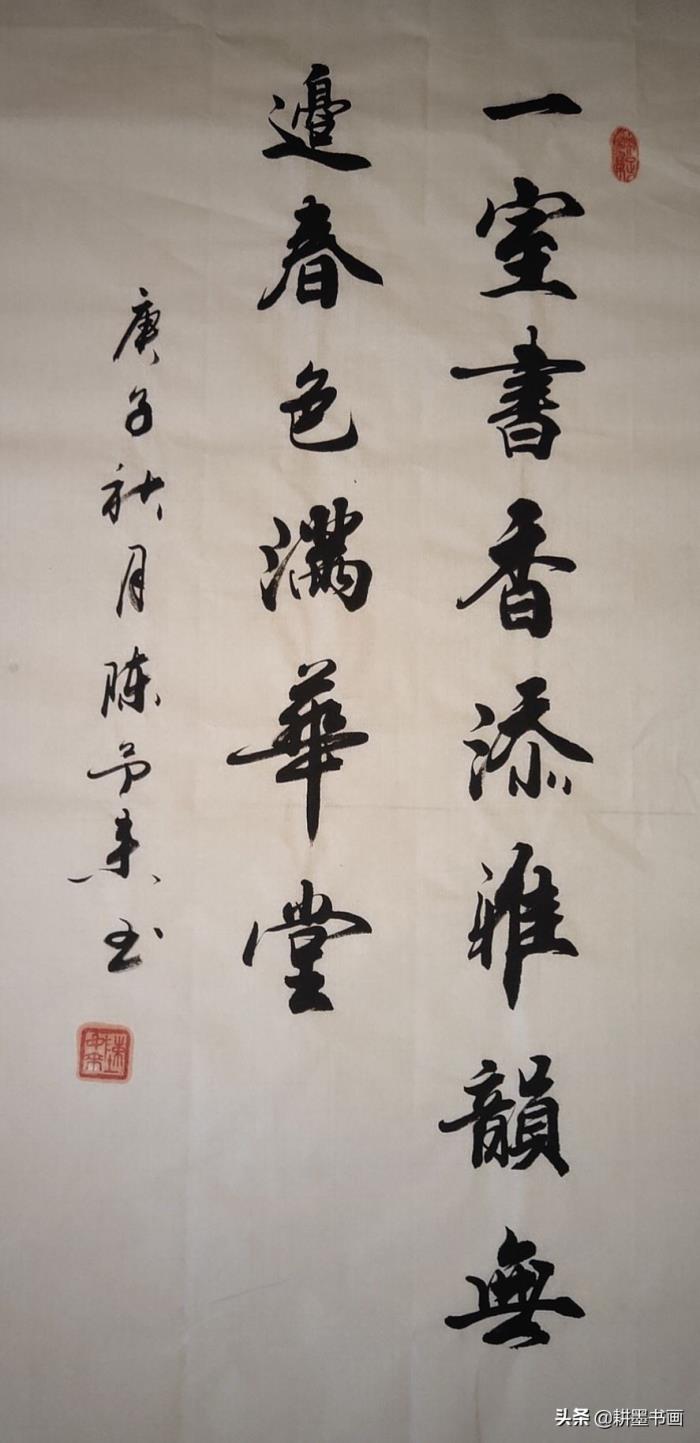 一室書香添雅韻無
邊春色滿華堂
庚子秋月陳予来书
头条 @耕墨书画